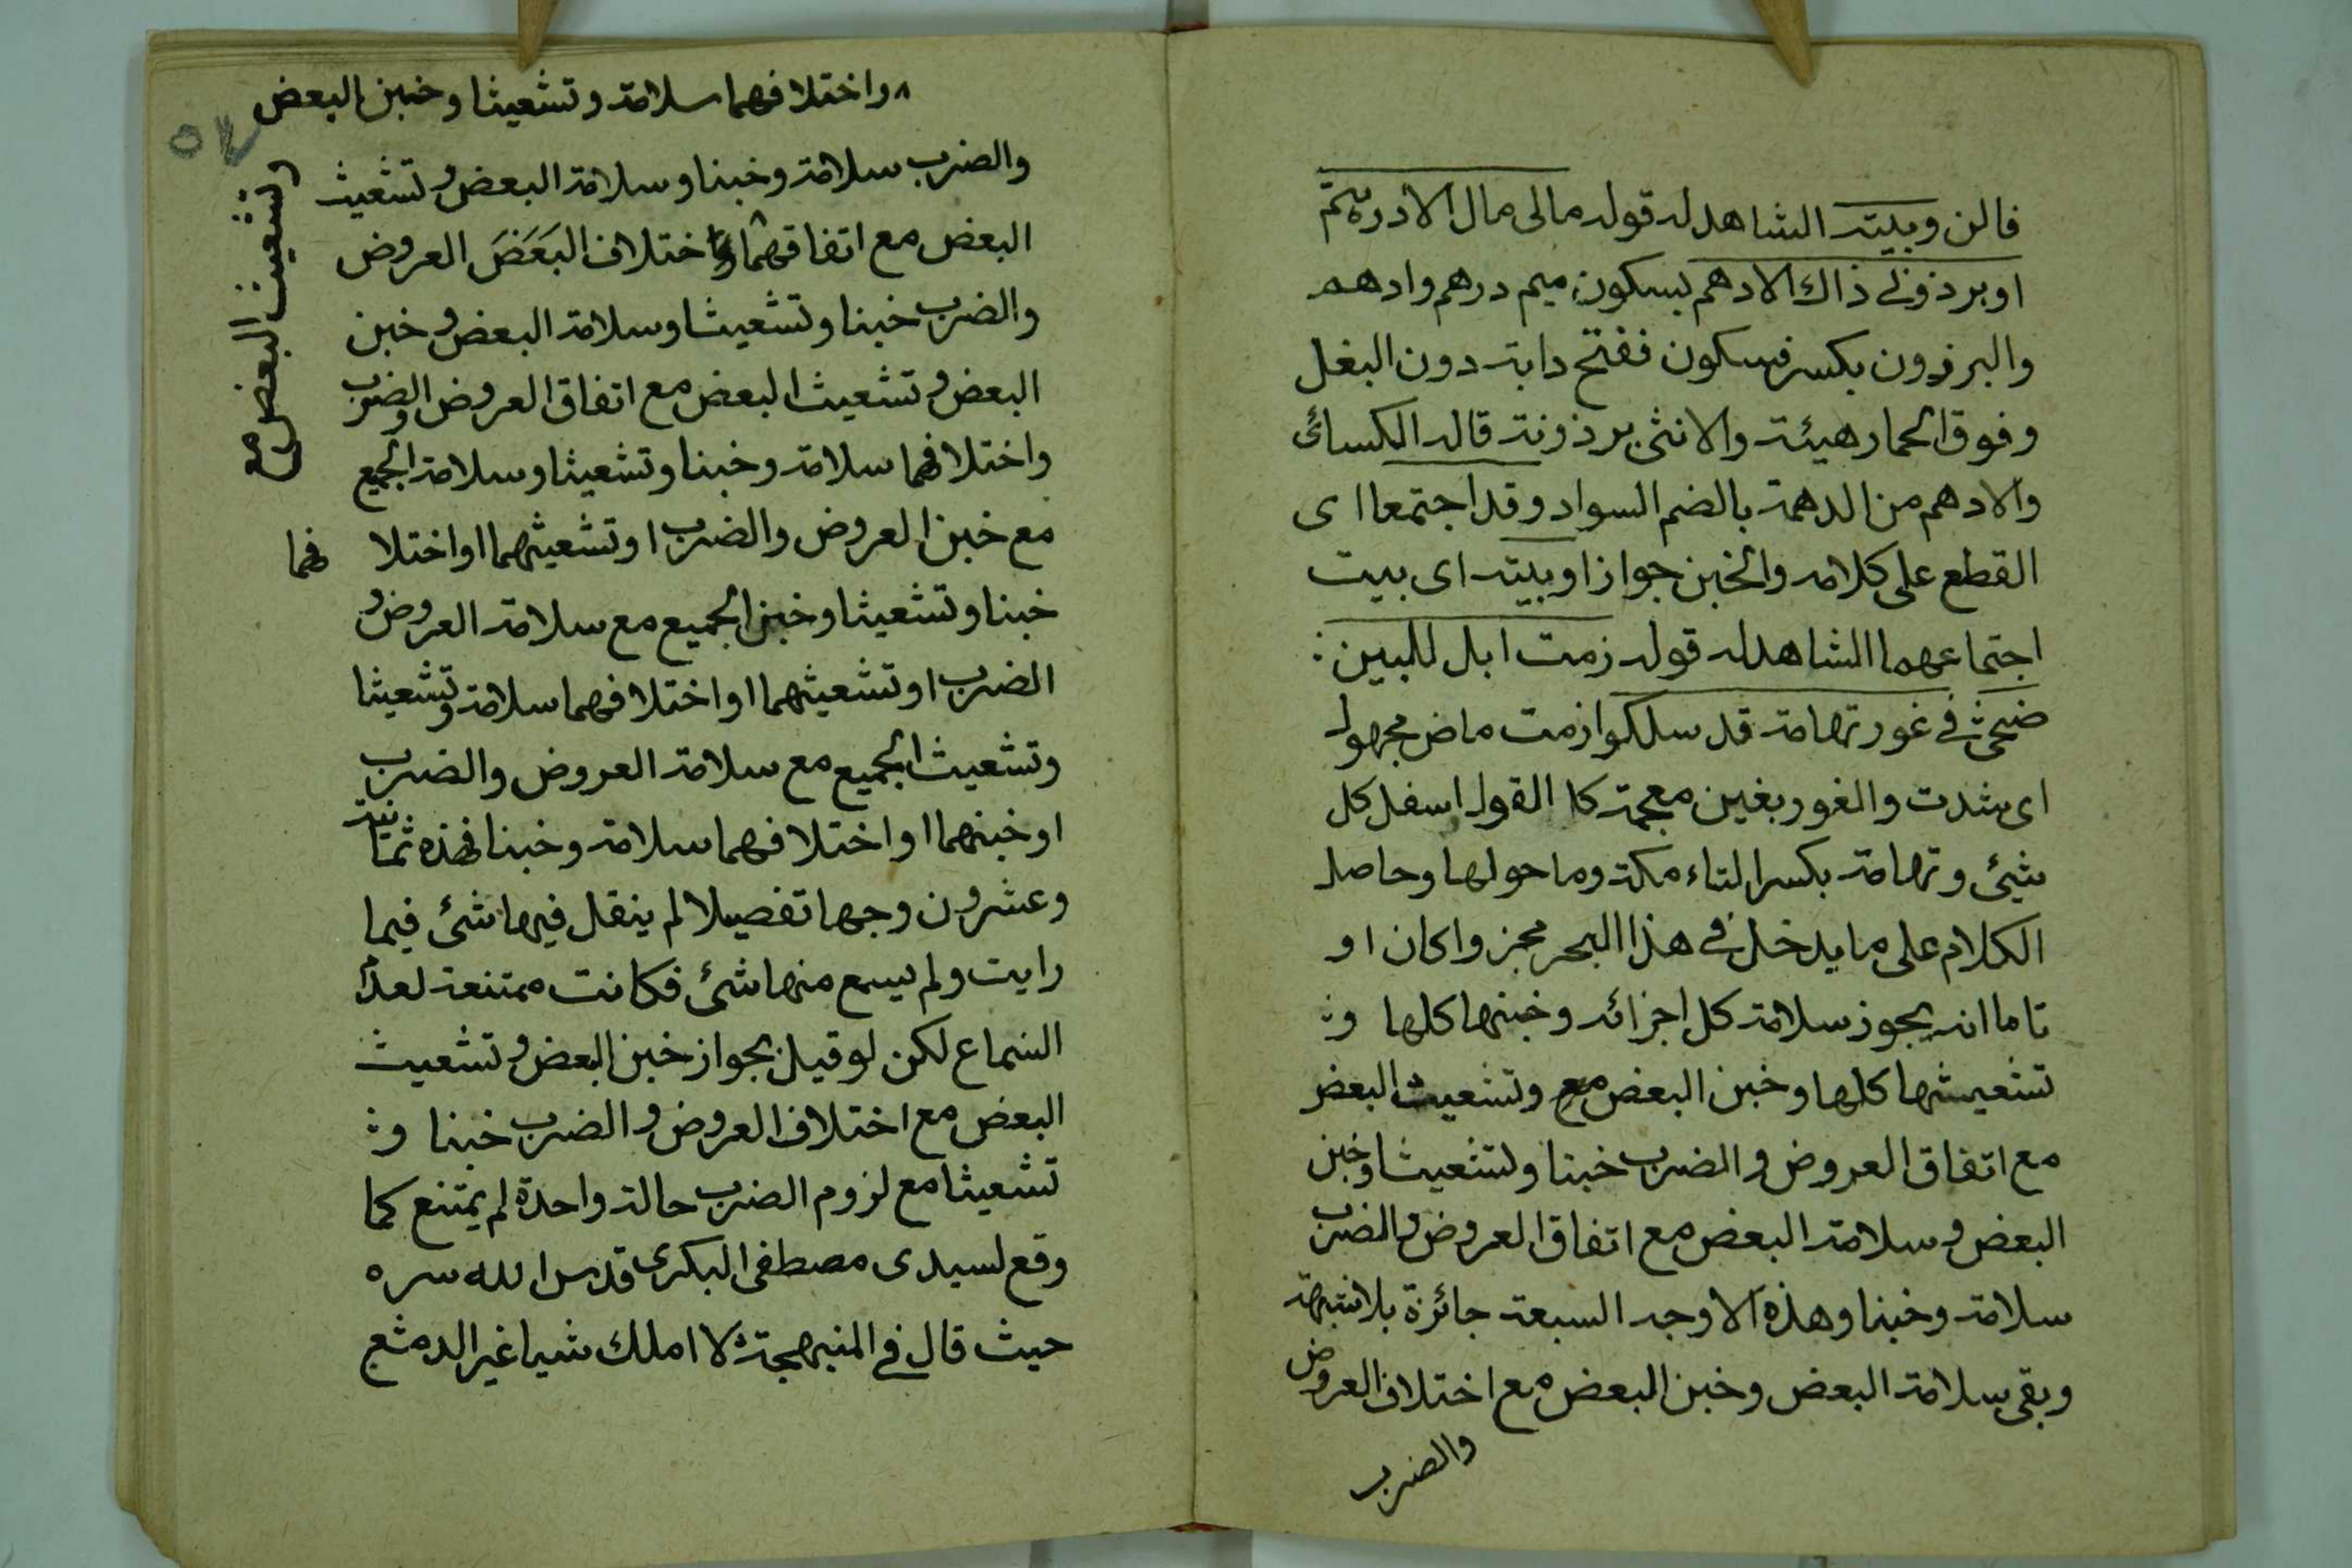 فالن وبيته الشاهد له قوله مالى مال الا درهم
او برذونى ذاك الادهم بسكون ميم درهم وادهم
والبرذون بكسر فسكون ففتح دابة دون البغل
وفوق الحمار هيئة والانثى برذونة قاله الكسائى
والادهم من الدهمة بالضم السواد وقد اجتمعا اى
القطع على كلامه والخبن جوازا وبيته اى بيت
اجتماعهما الشاهد له قوله زمت ابل للبين
ضحى فى غور تهامة قد سلكوا زمت ماض مجهول
اى شدت والغور بغين معجمة كا القول اسفل كل
شيئ وتهامة بكسر التاء مكة وما حولها وحاصل
الكلام على ما يدخل فى هذا البحر مجزوا كان او
تاما انه يجوز سلامة كل اجزائه وخبنها كلها و
تشعيثها كلها وخبن البعض مع وتشعيث البعض
مع اتفاق العروض والضرب خبنا وتشعيثا وخبن
البعض وسلامة البعض مع اتفاق العروض والضرب
سلامة وخبنا وهذه الاوجه السبعة جائزة بلا شبهة
وبقى سلامة البعض وخبن البعض مع اختلاف العروض
والضرب
واختلافهما سلامة وتشعيثا وخبن البعض
وتشعيث البعض مع
والضرب سلامة وخبنا وسلامة البعض وتشعيث
البعض مع اتفاقهما واختلاف البعض العروض
والضرب خبنا وتشعيثا وسلامة البعض وخبن
البعض وتشعيث البعض مع اتفاق العروض والضرب
واختلافهما سلامة وخبنا وتشعيثا وسلامة الجميع
مع خبن العروض والضرب او تشعيثهما او اختلا فهما
خبنا وتشعيثا وخبن الجميع مع سلامة العروض و
الضرب او تشعيثهما او اختلافهما سلامة وتشعيثا
وتشعيث الجميع مع سلامة العروض والضرب
او خبنهما او اختلافهما سلامة وخبنا فهذه ثمانية
وعشرون وجها تفصيلا لم ينقل فيها شئ فيما
رايت ولم يسمع منها شئ فكانت ممتنعة لعدم
السماع لكن لو قيل بجواز خبن البعض وتشعيث
البعض مع اختلاف العروض والضرب خبنا و
تشعيثا مع لزوم الضرب حالة واحدة لم يمتنع كما
وقع لسيدى مصطفى البكرى قدس الله سره
حيث قال فى المنبهجة لا املك شيا غير الدمع